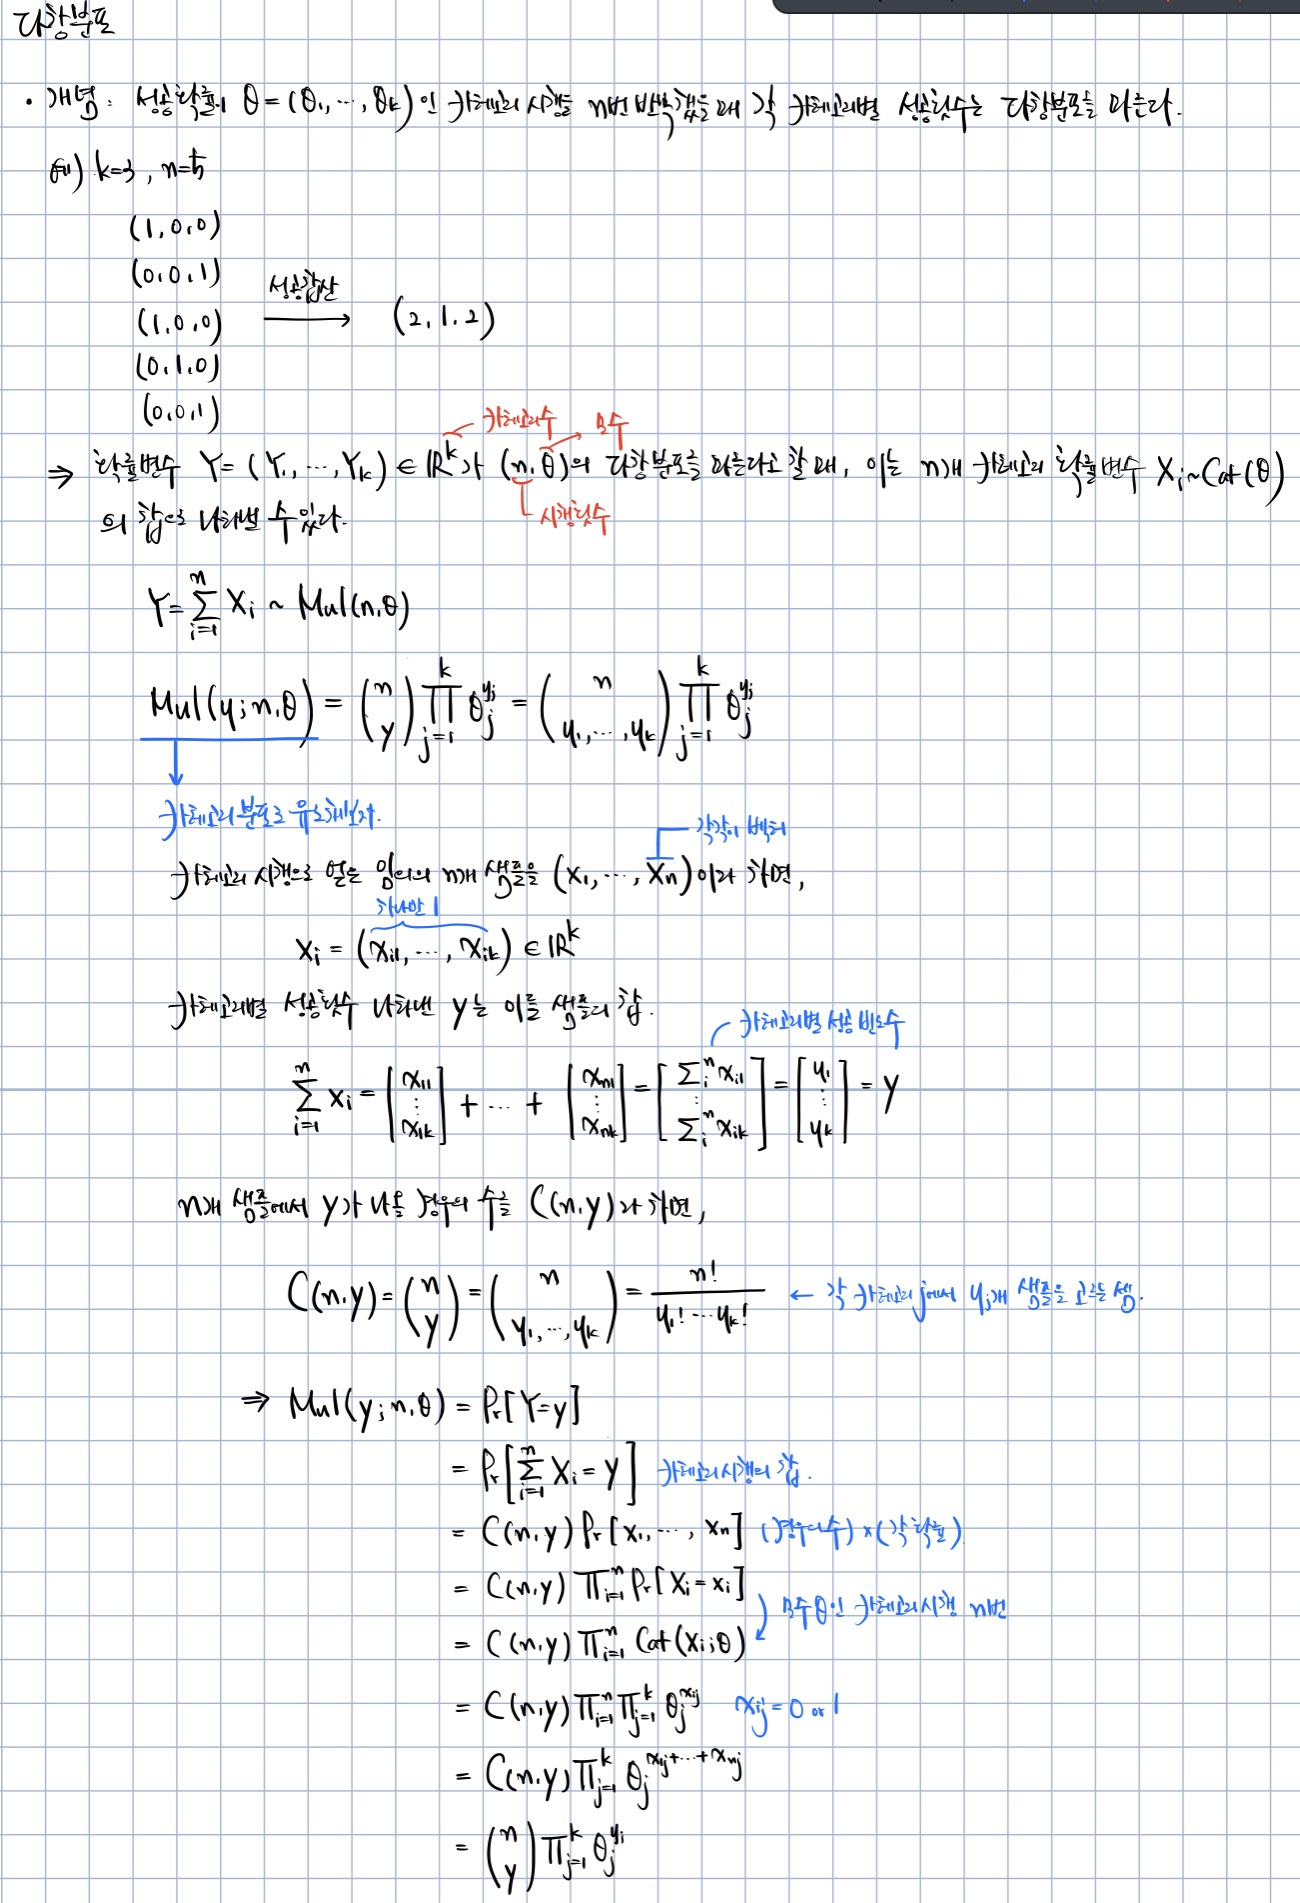 다항분포
· 개념: 성공확률이 θ=(θ₁,…,θₖ)인 카테고리 시행을 n번 반복했을때 각 카테고리별 성공횟수는 다항분포를 따른다.
예) k=3, n=5
(1,0,0)
(0,0,1)
성공합산
(1,0,0) → (2,1,2)
(0,1,0)
(0,0,1)
카테고리수 모수
⇒ 확률변수 Y=(Y₁,…,Yₖ)∈ℝᵏ가 (n,θ)의 다항분포를 따른다고 할 때, 이는 n개 카테고리 확률변수 Xᵢ~Cat(θ)
의 합으로 나타낼 수 있다.
시행횟수
Y=∑ᵢ₌₁ⁿ Xᵢ ~ Mul(n,θ)
Mul(y;n,θ) = (n y) ∏ⱼ₌₁ᵏ θⱼ^yⱼ = (n y₁,…,yₖ) ∏ⱼ₌₁ᵏ θⱼ^yⱼ
카테고리 분포로 유도해보자.
각각이 벡터
카테고리 시행으로 얻는 임의의 n개 샘플을 (x₁,…,xₙ)이라 하면,
하나만 1
xᵢ = (xᵢ₁,…,xᵢₖ) ∈ ℝᵏ
카테고리별 성공횟수 나타낸 y는 이들 샘플의 합.
카테고리별 성공 빈도수
∑ᵢ₌₁ⁿ xᵢ = [x₁₁ ⋮ x₁ₖ] + … + [xₙ₁ ⋮ xₙₖ] = [∑ᵢⁿ xᵢ₁ ⋮ ∑ᵢⁿ xᵢₖ] = [y₁ ⋮ yₖ] = y
n개 샘플에서 y가 나올 경우의 수를 C(n,y)라 하면,
C(n,y) = (n y) = (n y₁,…,yₖ) = n!/(y₁!…yₖ!) ← 각 카테고리 j에서 yⱼ개 샘플을 고르는 셈.
⇒ Mul(y;n,θ) = Pr[Y=y]
= Pr[∑ᵢ₌₁ⁿ Xᵢ = y] 카테고리시행의 합.
= C(n,y) Pr[x₁,…,xₙ] (경우의수)×(각 확률)
= C(n,y) ∏ᵢ₌₁ⁿ Pr[Xᵢ=xᵢ]
모수 θ인 카테고리시행 n번
= C(n,y) ∏ᵢ₌₁ⁿ Cat(xᵢ;θ)
= C(n,y) ∏ᵢ₌₁ⁿ ∏ⱼ₌₁ᵏ θⱼ^xᵢⱼ xᵢⱼ = 0 or 1
= C(n,y) ∏ⱼ₌₁ᵏ θⱼ^(x₁ⱼ+…+xₙⱼ)
= (n y) ∏ⱼ₌₁ᵏ θⱼ^yⱼ